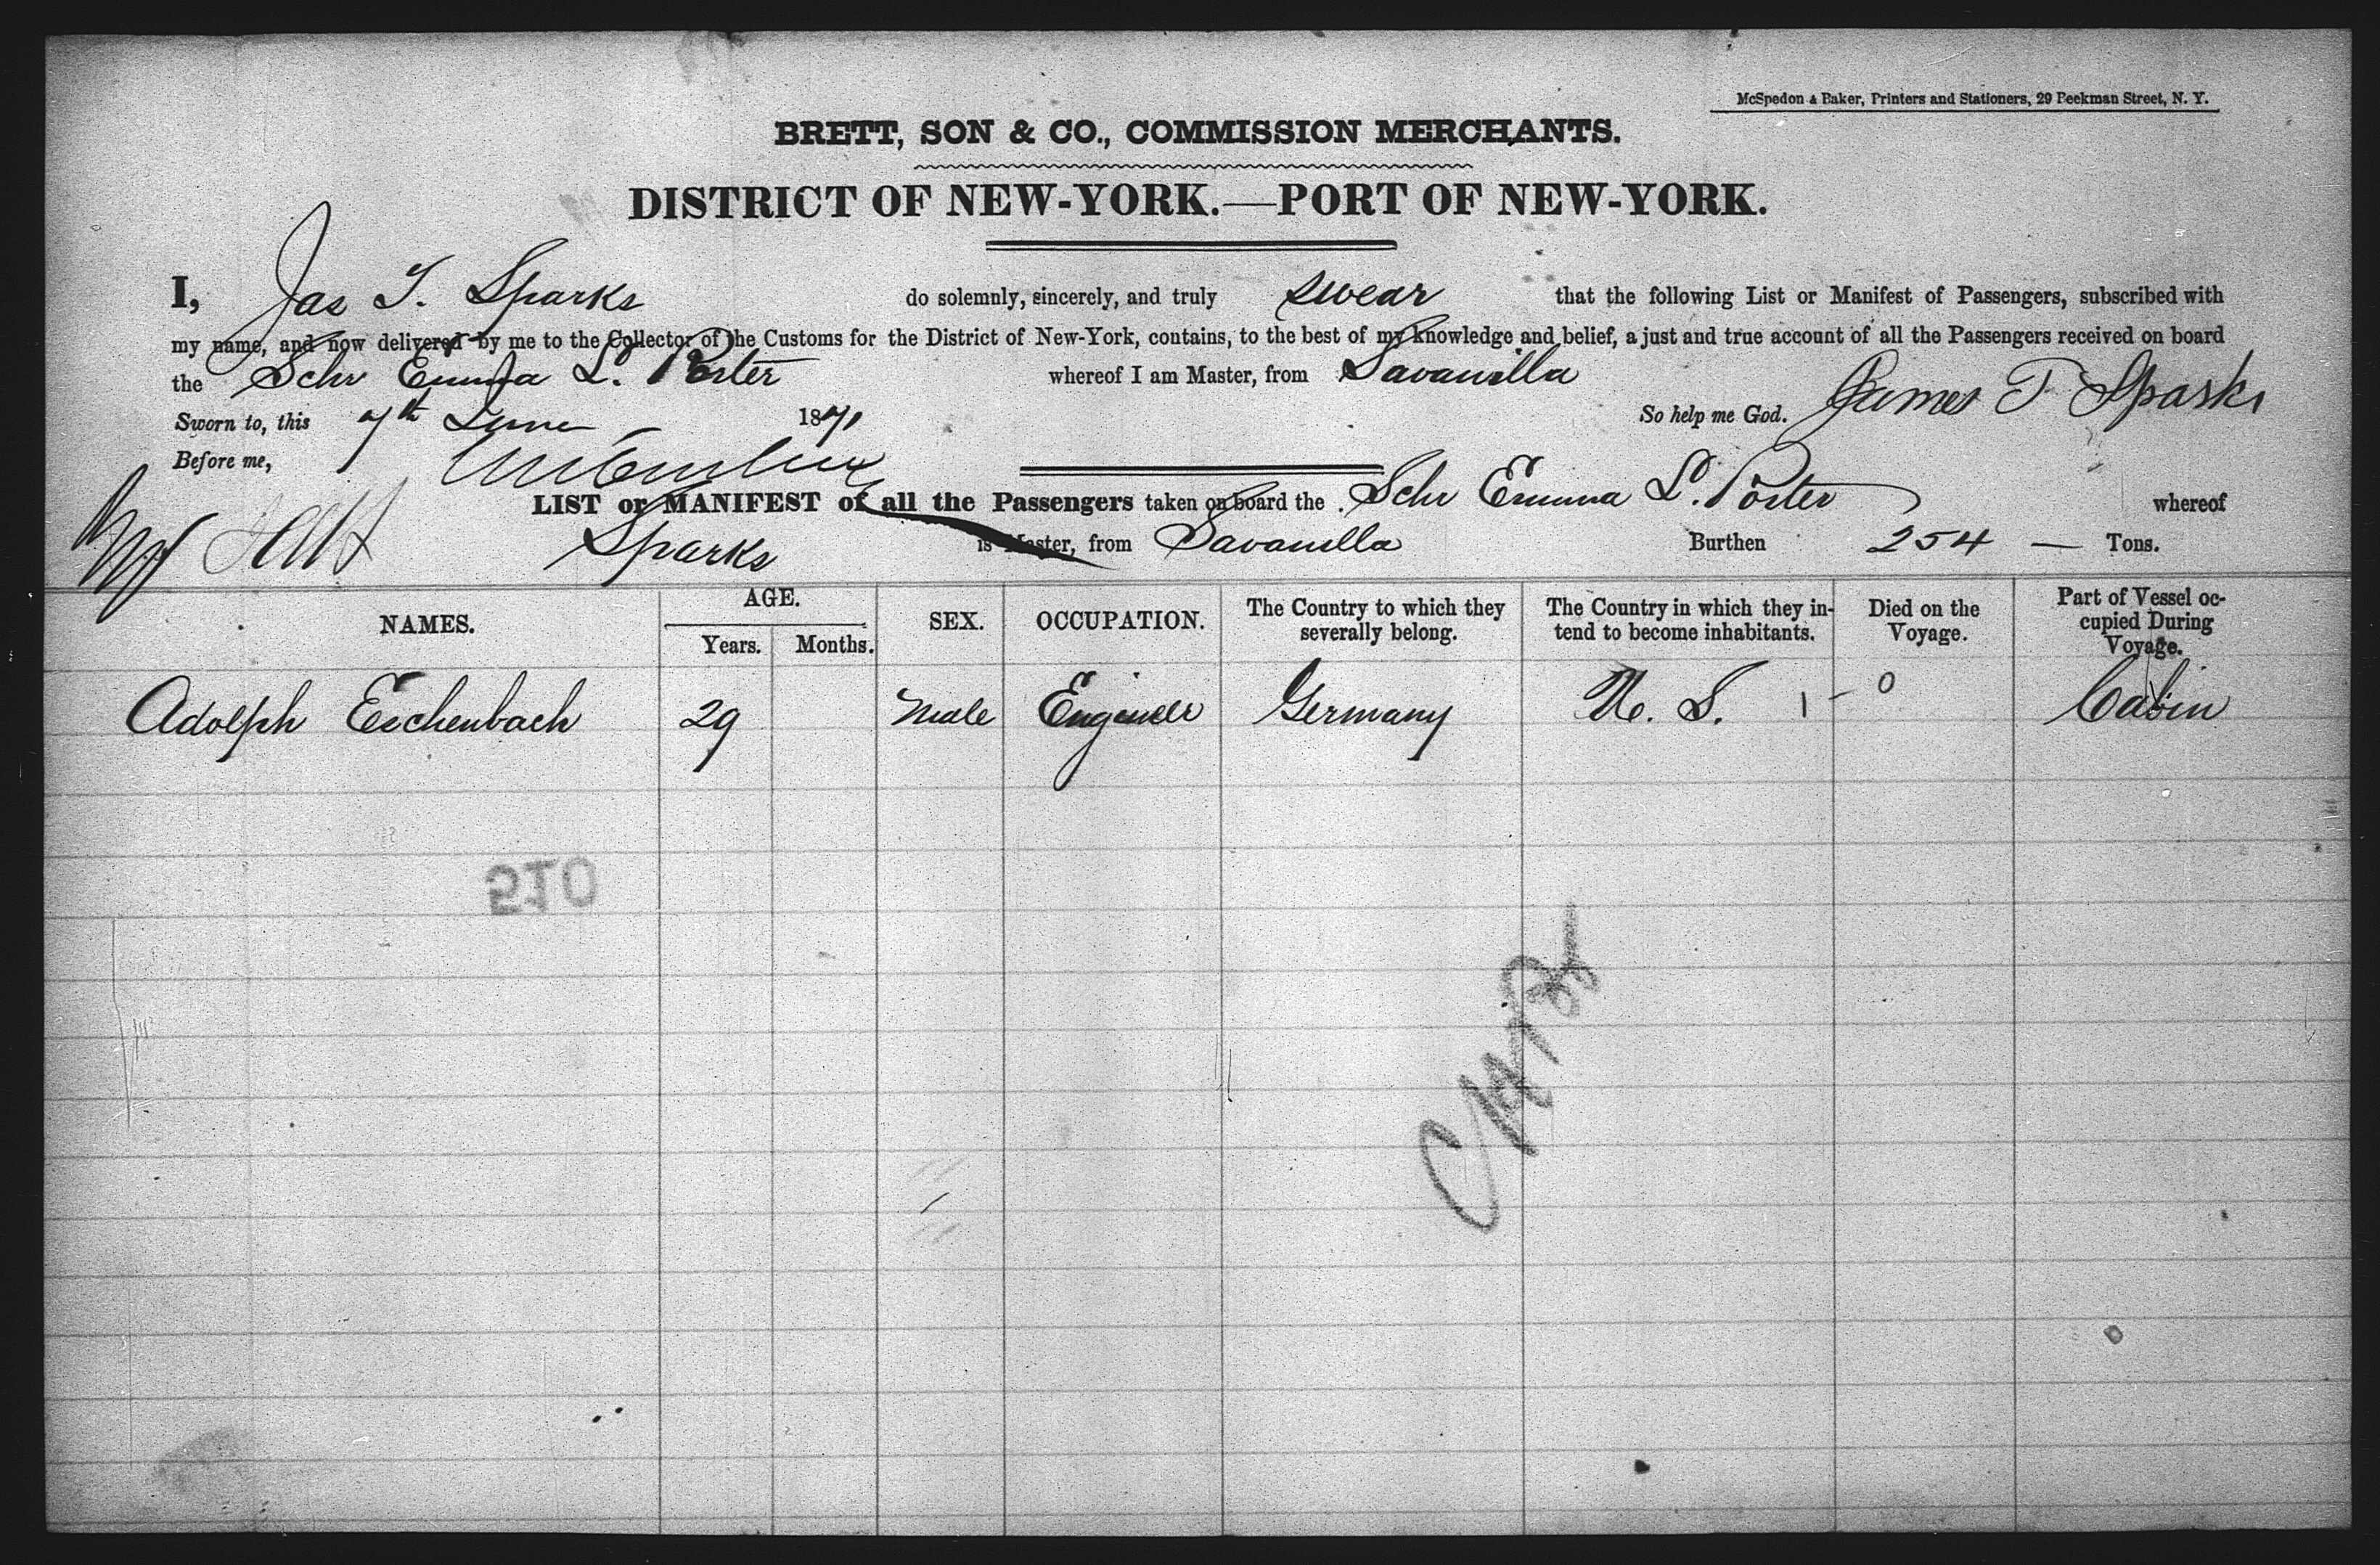 McSpedon & Baker, Printers and Stationers, 29 Beekman Street, N. Y.
BRETT, SON & CO., COMMISSION MERCHANTS.
DISTRICT OF NEW-YORK.—PORT OF NEW-YORK.
I, Jas T. Sparks do solemnly, sincerely, and truly swear that the following List or Manifest of Passengers, subscribed with
my name, and now delivered by me to the Collector of the Customs for the District of New-York, contains, to the best of my knowledge and belief, a just and true account of all the Passengers received on board
the Schr Emma L. Porter whereof I am Master, from Savanilla
Sworn to, this 7th June 1871 So help me God. James T Sparks
Before me,
LIST or MANIFEST of all the Passengers taken on board the Schr Emma L. Porter whereof
Sparks is Master, from Savanilla Burthen 254 — Tons.
NAMES. AGE. Years. Months. SEX. OCCUPATION. The Country to which they severally belong. The Country in which they intend to become inhabitants. Died on the Voyage. Part of Vessel occupied During Voyage.
Adolph Eschenbach 29 Male Engineer Germany U. S. 1 - 0 Cabin
510